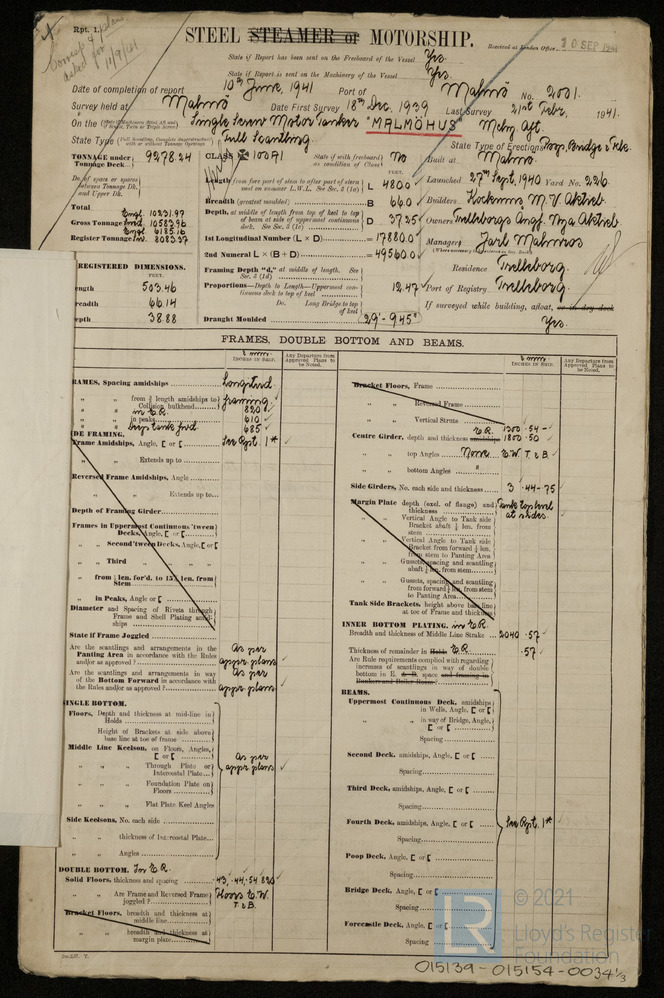 Rpt. 1.
STEEL STEAMER or MOTORSHIP.
Received at London Office 10 SEP 1941
State if Report has been sent on the Freeboard of the Vessel Yes.
State if Report is sent on the Machinery of the Vessel Yes.
Date of completion of report 10th June, 1941 Port of Malmö No. 2001.
Survey held at Malmö Date First Survey 18th Dec. 1939 Last Survey 21st Febr. 1941.
On the Single Screw Motor Tanker "MALMÖHUS" Mchy Aft.
State Type Full Scantling State Type of Erections Poop, Bridge & Fcle.
TONNAGE under Tonnage Deck 9278.24
CLASS 100A1 State if with freeboard as condition of Class No
Built at Malmö
Launched 27th Sept. 1940 Yard No. 226
Builders Kockums M.V. Aktieb.
Owners Trelleborgs Ångf. Nya Aktieb.
Managers Jarl Malmros
Residence Trelleborg
Port of Registry Trelleborg
If surveyed while building, afloat, or in dry dock
Yes.
Do. of space or spaces between Tonnage Dk. and Upper Dk.
Total
Gross Tonnage
Register Tonnage
Length from fore part of stem to after part of stern post on summer L.W.L. See Sec. 3 (1a) L 480.0
Breadth (greatest moulded) B 66.0
Depth, at middle of length from top of keel to top of beam at side of uppermost continuous deck. See Sec. 3 (1c) D 37.25
1st Longitudinal Number (L × D) = 17880.0
2nd Numeral L × (B + D) = 49560.0
Framing Depth "d," at middle of length. See Sec. 3 (1d)
Proportions—Depth to Length—Uppermost continuous deck to top of keel 12.47
Do. Long Bridge to top of keel
Draught Moulded 29'-9.45"
REGISTERED DIMENSIONS.
FEET.
ength 503.46
readth 66.14
epth 38.88
FRAMES, DOUBLE BOTTOM AND BEAMS.
INCHES IN SHIP.
Any Departure from Approved Plans to be Noted.
RAMES, Spacing amidships Longitud.
" " from 3/5 length amidships to Collision bulkhead framing.
" " in E.R. 820
" " in peaks 610
" " Deep tank fwd. 685
DE FRAMING.
Frame Amidships, Angle, [ or [ See Rpt. 1*
" " Extends up to
Reversed Frame Amidships, Angle
" " " Extends up to
Depth of Framing Girder
Frames in Uppermost Continuous 'tween Decks, Angle, [ or [
" " Second 'tween Decks, Angle, [ or [
" " Third " "
" " from 1/5 len. for'd. to 15% len. from Stem
" " in Peaks, Angle or [
Diameter and Spacing of Rivets through Frame and Shell Plating amidships
State if Frame Joggled
Are the scantlings and arrangements in the Panting Area in accordance with the Rules and/or as approved? As per appr. plans
Are the scantlings and arrangements in way of the Bottom Forward in accordance with the Rules and/or as approved? As per appr. plans
SINGLE BOTTOM.
Floors, Depth and thickness at mid-line in Holds
Height of Brackets at side above base line at toe of frame
Middle Line Keelson, on Floors, Angles, [ or [
" " Through Plate or Intercostal Plate As per appr. plans
" " Foundation Plate on Floors
" " Flat Plate Keel Angles
Side Keelsons, No. each side
" " thickness of Intercostal Plate
" " Angles
DOUBLE BOTTOM. In E.R.
Solid Floors, thickness and spacing .43, .44, .54 820
" " Are Frame and Reversed Frame joggled? Floors E.W. T. & B.
Bracket Floors, breadth and thickness at middle line
" " breadth and thickness at margin plate
Bracket Floors, Frame
" " Reversed Frame
" " Vertical Struts
Centre Girder, depth and thickness amidships E.R. 1300 .54 1800 .50
" " top Angles None E.W. T. & B.
" " bottom Angles "
Side Girders, No. each side and thickness 3 .44-.75
Margin Plate depth (excl. of flange) and thickness Tank top level at sides
" " Vertical Angle to Tank side Bracket abaft 1/4 len. from stem
" " Vertical Angle to Tank side Bracket from forward 1/4 len. from stem to Panting Area
" " Gussets, spacing and scantling abaft 1/4 len. from stem
" " Gussets, spacing and scantling from forward 1/4 len. from stem to Panting Area
Tank Side Brackets, height above base line at toe of Frame and thickness
INNER BOTTOM PLATING. in E.R.
Breadth and thickness of Middle Line Strake 2040 .57
Thickness of remainder in Holds E.R. .57
Are Rule requirements complied with regarding increases of scantlings in way of double bottom in E. & B. space and framing in Bunkers and Boiler Room?
BEAMS.
Uppermost Continuous Deck, amidships in Wells, Angle, [ or [
" " in way of Bridge, Angle, [ or [
Spacing
Second Deck, amidships, Angle, [ or [
Spacing
Third Deck, amidships, Angle, [ or [
Spacing
Fourth Deck, amidships, Angle, [ or [ See Rpt. 1*
Spacing
Poop Deck, Angle, [ or [
Spacing
Bridge Deck, Angle, [ or [
Spacing
Forecastle Deck, Angle, [ or [
Spacing
© 2021
Lloyd's Register
Foundation
015139-015154-0034 1/3